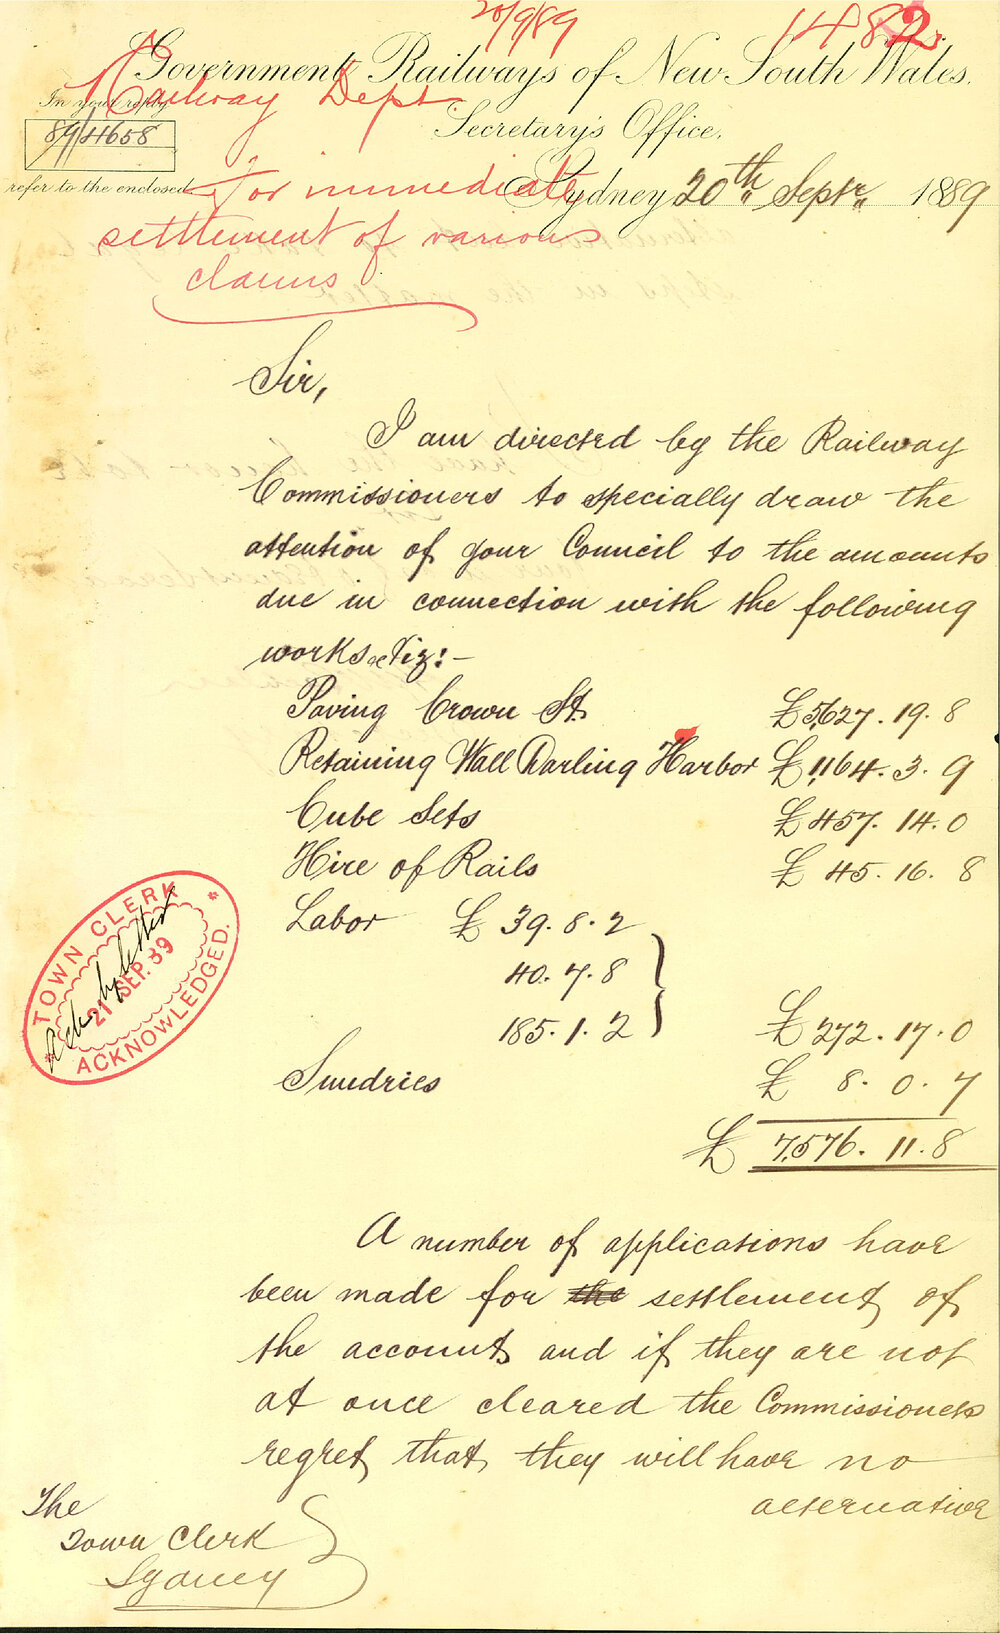 20/9/89
1482
Government Railways of New South Wales.
Railway Dept
Secretary's Office,
In your reply
89/4658
refer to the enclosed
Sydney 20th Septr 1889
For immediate
settlement of various
claims
Sir,
I am directed by the Railway
Commissioners to specially draw the
attention of your Council to the amounts
due in connection with the following
works &c Viz: —
Paving Crown St. £5,627. 19. 8
Retaining Wall Darling Harbor £1,164. 3. 9
Cube Sets £457. 14. 0
Hire of Rails £ 45. 16. 8
Labor £ 39. 8. 2
40. 7. 8
185. 1. 2
£272. 17. 0
Sundries £ 8. 0. 7
£ 7,576. 11. 8
A number of applications have
been made for the settlement of
the accounts and if they are not
at once cleared the Commissioners
regret that they will have no
alternative
The
Town Clerk
Sydney
TOWN CLERK
21 SEP. 89
ACKNOWLEDGED.